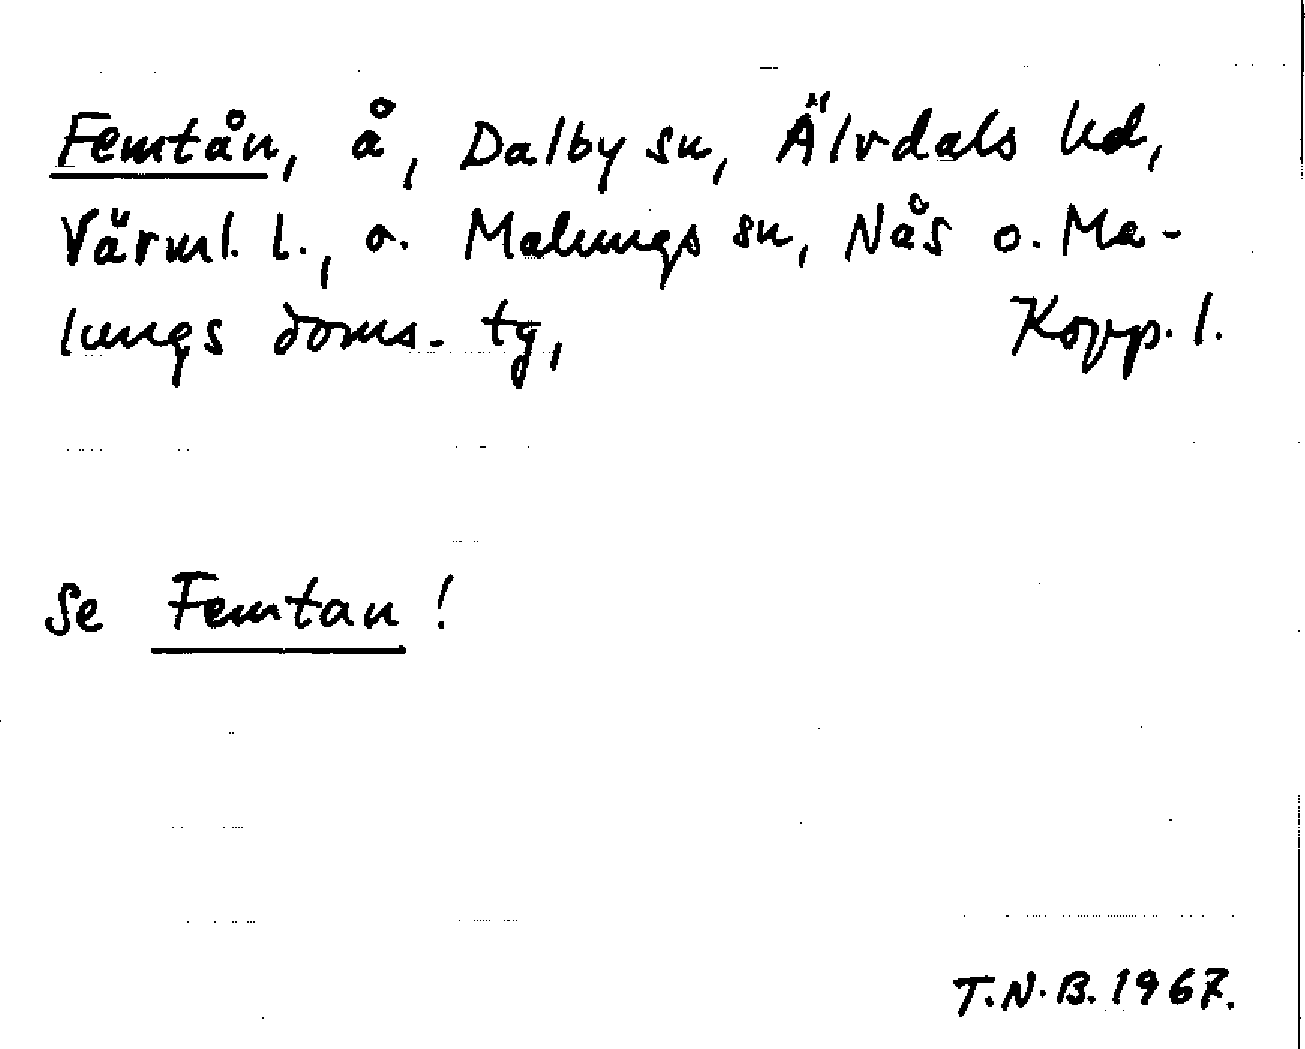 Femtån, å, Dalby sn, Älvdals hd,
Värml. l., o. Malungs sn, Nås o. Ma-
lungs doms. tg, Kopp. l.
Se Femtan!
T.N.B. 1967.